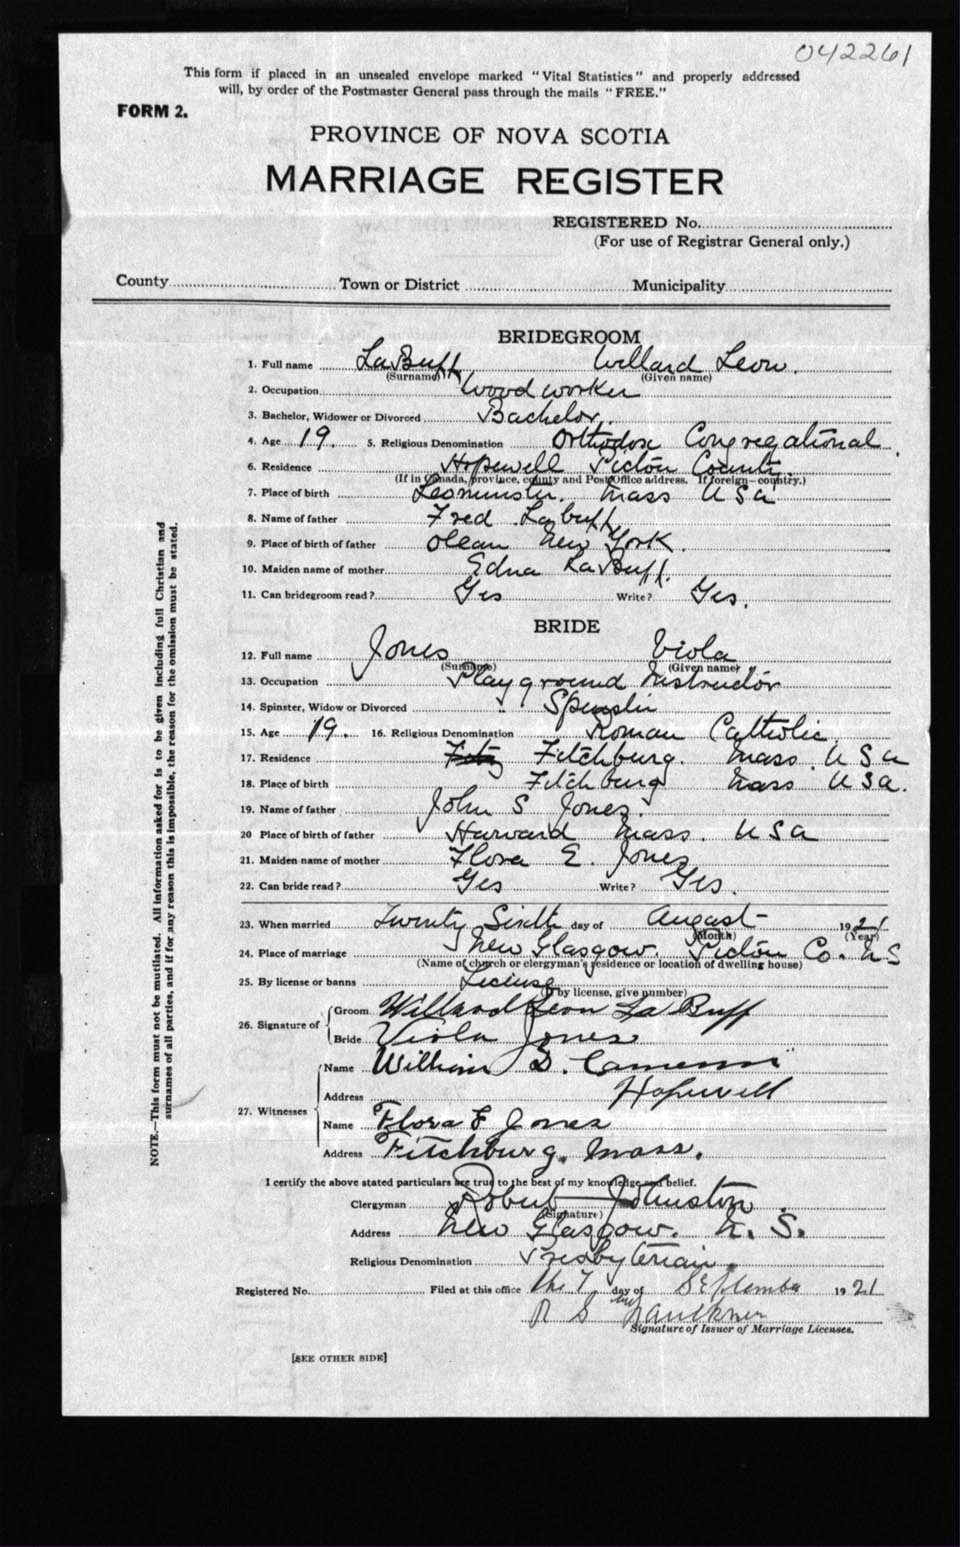 042261
This form if placed in an unsealed envelope marked "Vital Statistics" and properly addressed
will, by order of the Postmaster General pass through the mails "FREE."
FORM 2.
PROVINCE OF NOVA SCOTIA
MARRIAGE REGISTER
REGISTERED No.
(For use of Registrar General only.)
County Town or District Municipality
BRIDEGROOM
1. Full name LaBuff Willard Leon.
(Surname) (Given name)
2. Occupation Wood worker
3. Bachelor, Widower or Divorced Bachelor.
4. Age 19. 5. Religious Denomination Orthodox Congregational
6. Residence Hopewell Pictou County.
(If in Canada, province, county and Post Office address. If foreign—country.)
7. Place of birth Leominster. Mass USA
8. Name of father Fred Labuff
9. Place of birth of father Olean New York.
10. Maiden name of mother Edna LaBuff.
11. Can bridegroom read? Yes Write? Yes.
BRIDE
12. Full name Jones Viola
(Surname) (Given name)
13. Occupation Playground Instructor
14. Spinster, Widow or Divorced Spinster
15. Age 19. 16. Religious Denomination Roman Catholic.
17. Residence Fitchburg. Mass. USA
18. Place of birth Fitchburg Mass USA.
19. Name of father John S Jones.
20 Place of birth of father Harvard Mass. USA
21. Maiden name of mother Flora E. Jones
22. Can bride read? Yes Write? Yes.
23. When married Twenty Sixth day of August 1921
(Month) (Year)
24. Place of marriage New Glasgow. Pictou Co. NS
(Name of church or clergyman's residence or location of dwelling house)
25. By license or banns License
(If by license, give number)
26. Signature of Groom Willard Leon La Buff
Bride Viola Jones
27. Witnesses Name William D. Cameron
Address Hopewell
Name Flora E Jones
Address Fitchburg, Mass.
I certify the above stated particulars are true to the best of my knowledge and belief.
Clergyman Robert Johnston.
(Signature)
Address New Glasgow. N. S.
Religious Denomination Presbyterian.
Registered No. Filed at this office the 7 day of September 1921
R S Faulkner
Signature of Issuer of Marriage Licenses.
[SEE OTHER SIDE]
NOTE.—This form must not be mutilated. All information asked for is to be given including full Christian and
surnames of all parties, and if for any reason this is impossible, the reason for the omission must be stated.